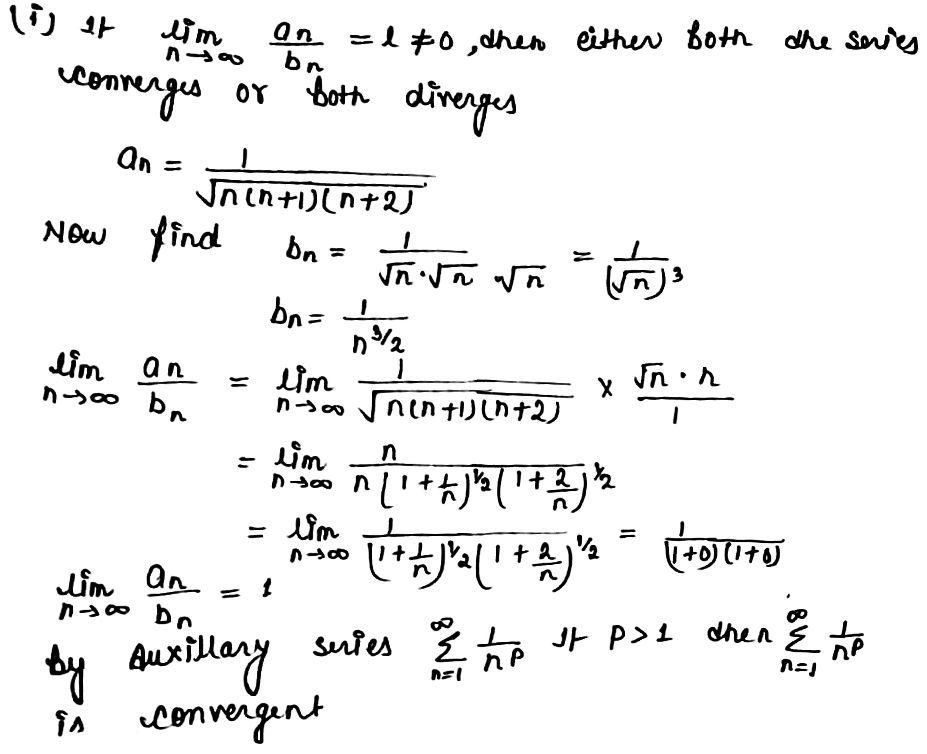 (i) If lim n→∞ an/bn = l ≠ 0, then either both the series
converges or both diverges
an = 1/√(n(n+1)(n+2))
Now find bn = 1/(√n·√n √n) = 1/(√n)³
bn = 1/n^(3/2)
lim n→∞ an/bn = lim n→∞ 1/√(n(n+1)(n+2)) × (√n·n)/1
= lim n→∞ n/(n(1+1/n)^(1/2)(1+2/n)^(1/2))
= lim n→∞ 1/((1+1/n)^(1/2)(1+2/n)^(1/2)) = 1/((1+0)(1+0))
lim n→∞ an/bn = 1
by Auxillary series ∑ n=1 ∞ 1/n^p If P>1 then ∑ n=1 ∞ 1/n^p
is convergent